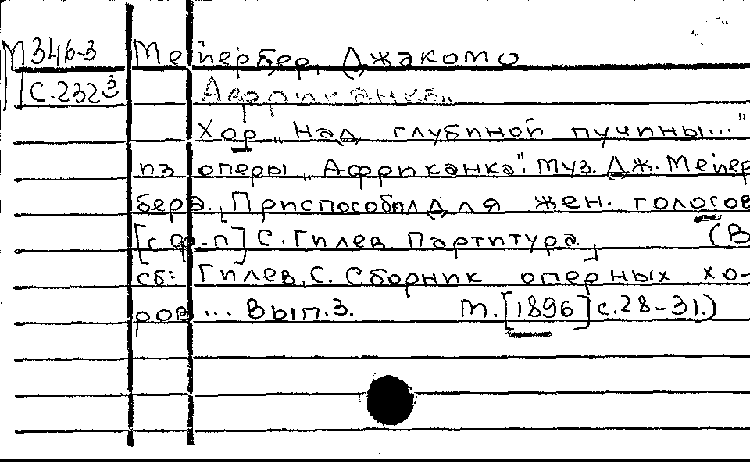 М346-3 Мейербер, Джакомо
С.2323 „Африканка„
Хор „Над глубиной пучины..."
из оперы „Африканка". Муз. Дж. Мейер-
бера. [Приспособил для жен. голосов
[с ф-п] С. Гилев Партитура] (В
сб: Гилев, С. Сборник оперных хо-
ров ... Вып.3. М. [1896] с.28-31.)